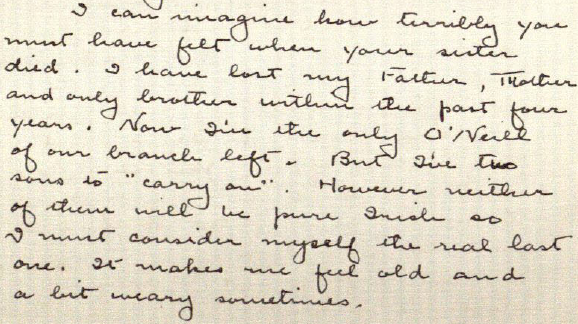 I can imagine how terribly you
must have felt when your sister
died. I have lost my Father, Mother
and only brother within the past four
years. Now I'm the only O'Neill
of our branch left. But I've two
sons to "carry on". However neither
of them will be pure Irish so
I must consider myself the real last
one. It makes me feel old and
a bit weary sometimes.